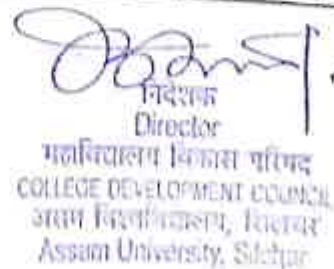 निदेशक
Director
महाविद्यालय विकास परिषद
COLLEGE DEVELOPMENT COUNCIL
असम विश्वविद्यालय, शिलचर
Assam University, Silchar